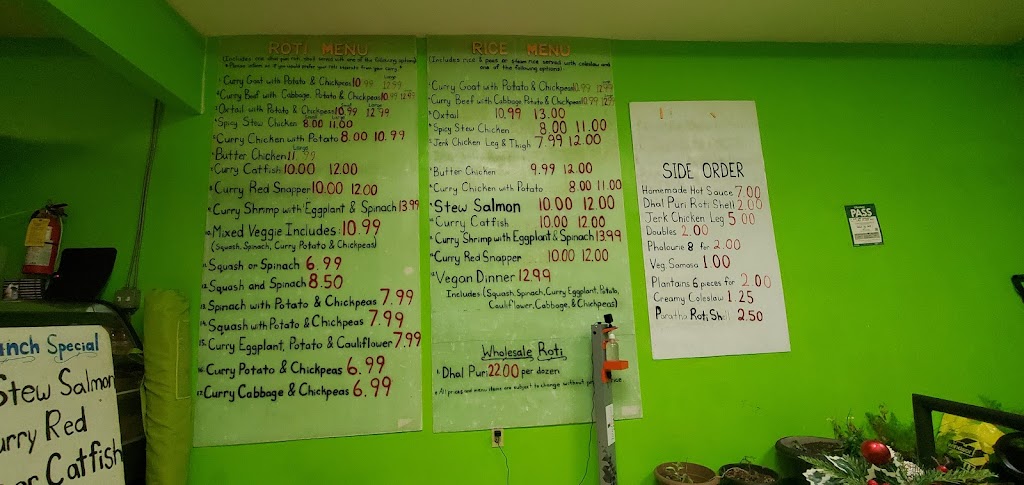 ROTI MENU
1. Curry Goat with Potato & Chickpeas 10.99 Large 12.99
2. Curry Beef with Cabbage, Potato & Chickpeas 10.99 12.99
3. Oxtail with Potato & Chickpeas 10.99 12.99
4. Spicy Stew Chicken 8.00 11.00
5. Curry Chicken with Potato 8.00 10.99
Butter Chicken 11.99
Curry Catfish 10.00 12.00
8. Curry Red Snapper 10.00 12.00
9. Curry Shrimp with Eggplant & Spinach 13.99
10. Mixed Veggie Includes: 10.99
(Squash, Spinach, Curry Potato & Chickpeas)
11. Squash or Spinach 6.99
12. Squash and Spinach 8.50
13. Spinach with Potato & Chickpeas 7.99
14. Squash with Potato & Chickpeas 7.99
15. Curry Eggplant, Potato & Cauliflower 7.99
16. Curry Potato & Chickpeas 6.99
17. Curry Cabbage & Chickpeas 6.99
RICE MENU
(Includes rice & peas or steam rice served with coleslaw and
one of the following options)
Curry Goat with Potato & Chickpeas 10.99 12.99
Curry Beef with Cabbage Potato & Chickpeas 10.99
Oxtail 10.99 13.00
Spicy Stew Chicken 8.00 11.00
Jerk Chicken Leg & Thigh 7.99 12.00
Butter Chicken 9.99 12.00
Curry Chicken with Potato 8.00 11.00
Stew Salmon 10.00 12.00
Curry Catfish 10.00 12.00
Curry Shrimp with Eggplant & Spinach 13.99
Curry Red Snapper 10.00 12.00
Vegan Dinner 12.99
Includes (Squash, Spinach, Curry Eggplant, Potato,
Cauliflower, Cabbage, & Chickpeas)
Wholesale Roti
1. Dhal Puri 22.00 per dozen
* All prices and menu items are subject to change without
SIDE ORDER
Homemade Hot Sauce 7.00
Dhal Puri Roti Shell 2.00
Jerk Chicken Leg 5.00
Doubles 2.00
Phalourie 8 for 2.00
Veg Samosa 1.00
Plantains 6 pieces for 2.00
Creamy Coleslaw 1.25
Paratha Roti Shell 2.50
PASS
nch Special
Stew Salmon
urry Red
Catfish